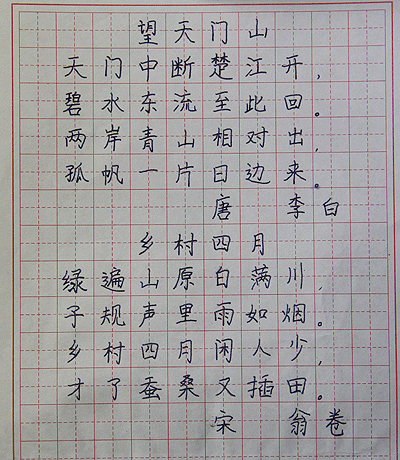 望天门山
天门中断楚江开，
碧水东流至此回。
两岸青山相对出，
孤帆一片日边来。
唐 李白
乡村四月
绿遍山原白满川，
子规声里雨如烟。
乡村四月闲人少，
才了蚕桑又插田。
宋 翁卷